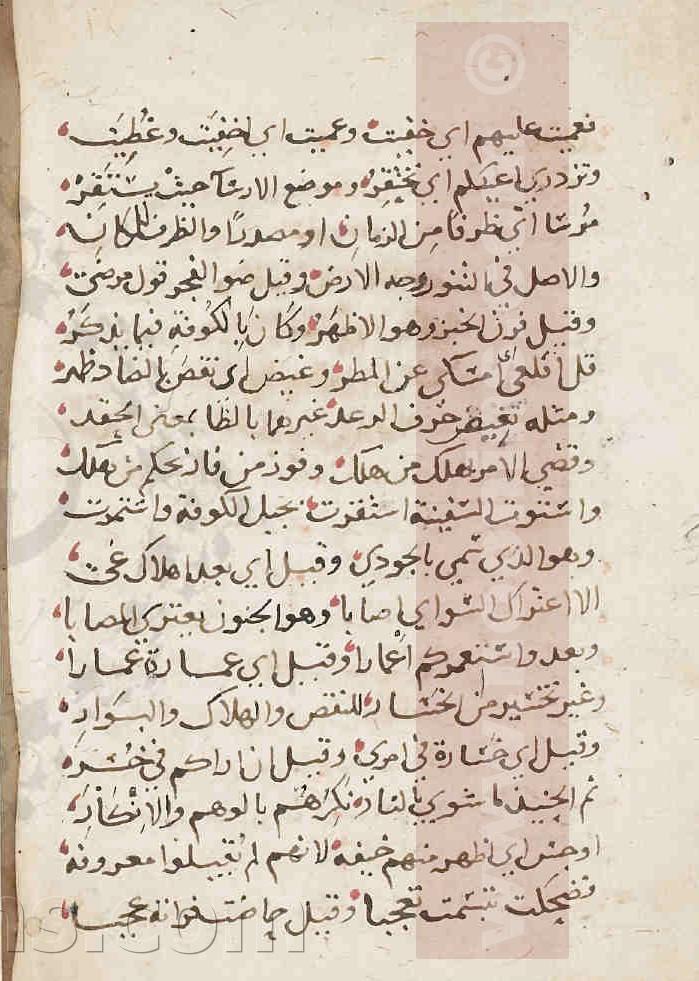 فعميت عليهم اي خفيت وعميت اي اخفيت وغطيت
وتزدري اعينكم اي تحتقر وموضع الارسآ حيث يستقر
مرسا اتي ظرفا من الزمان او مصدرا والظرف للمكان
والاصل في التنور وجه الارض وقيل ضو الفجر قول مرضي
وقيل فرن الخبز وهو الاظهر وكان بالكوفة فيما يذكر
قل اقلعي اي امسكي عن المطر وغيض اي نقص بالضاد ظهر
ومثله تغيض حرف الرعد غيرهما بالظا بمعنى الحقد
وقضي الامر بهلك من هلك وفوز من فاز بحكم من ملك
واستوت السفينة استقرت بجبل الكوفة واستمرت
وهو الذي سمي بالجودي وقيل اي بعدا هلاك غي
الا اعتراك السو اي اصابا وهو الجنون يعتري المصابا
وبعد واستعمركم اعمارا وقيل اي عمارة عمارا
وغير تخسير من الخسار للنقص والهلاك والبوار
وقيل اي خسارة في امري وقيل ان اراكم في خسر
ثم الحنيذ ما شوي بالنار نكرهم بالوهم والانكار
اوجس اي اظهر منهم خيفه لانهم لم يقبلوا معروفه
فضحكت تبسمت تعجبا وقيل حاضت فراته عجبا